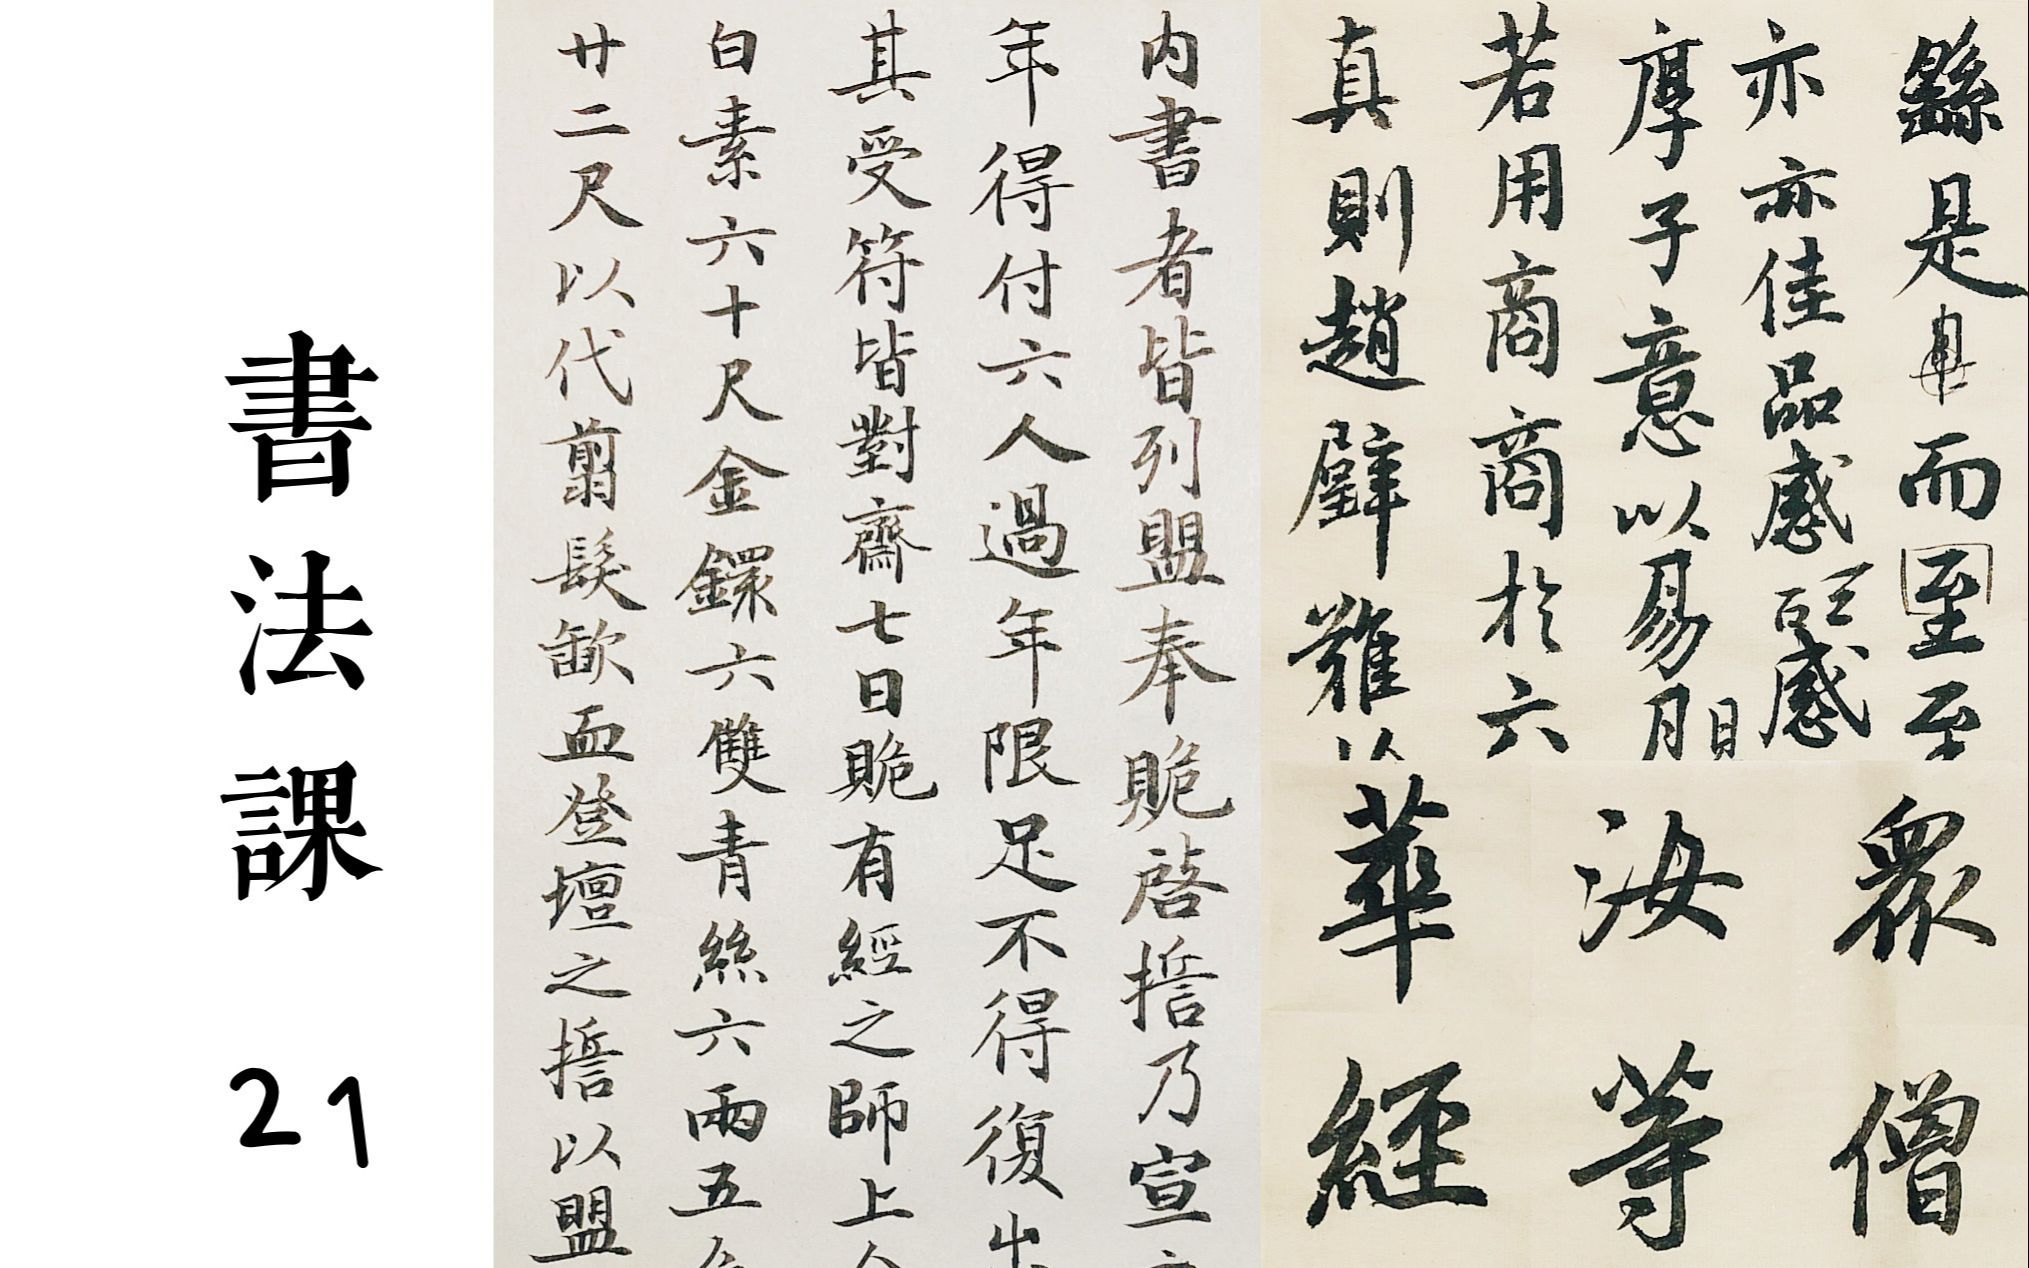 書法課
21
内書者皆列盟奉賝啓誓乃宣
年得付六人過年限足不得復出
其受符皆對齋七日賝有經之師上
白素六十尺金鐶六雙青絲六兩五
廿二尺以代翦髮歃血登壇之誓以盟
緜是而至至
亦亦佳品感感
厚子意以易月日
若用商商於六
真則趙璧難以
眾僧
汝等
華經